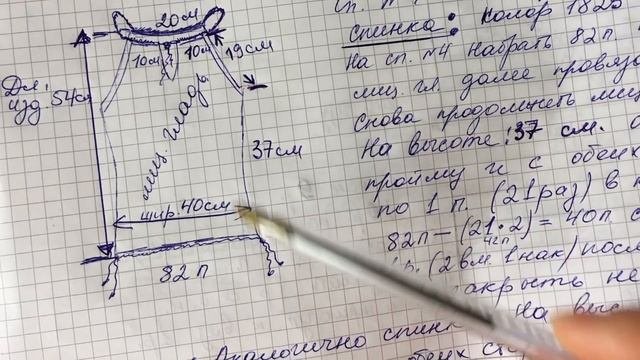 20см
10см 10см 19см
Дл.
изд. 54см
лиц. гладь
37см
шир. 40см
82 п
Спинка: Колор 182
На сп. №4 набрать 82п.
лиц. гл. далее провяз
Снова продолжить лиц
На высоте: 37 см.
пройму и с обеих
по 1 п. (21раз) в
82п-(21·2)= 40п с
42п
(2 вм. 1 нак) посл
закрыть не
Аналогично спинк
На выс
обеих ст